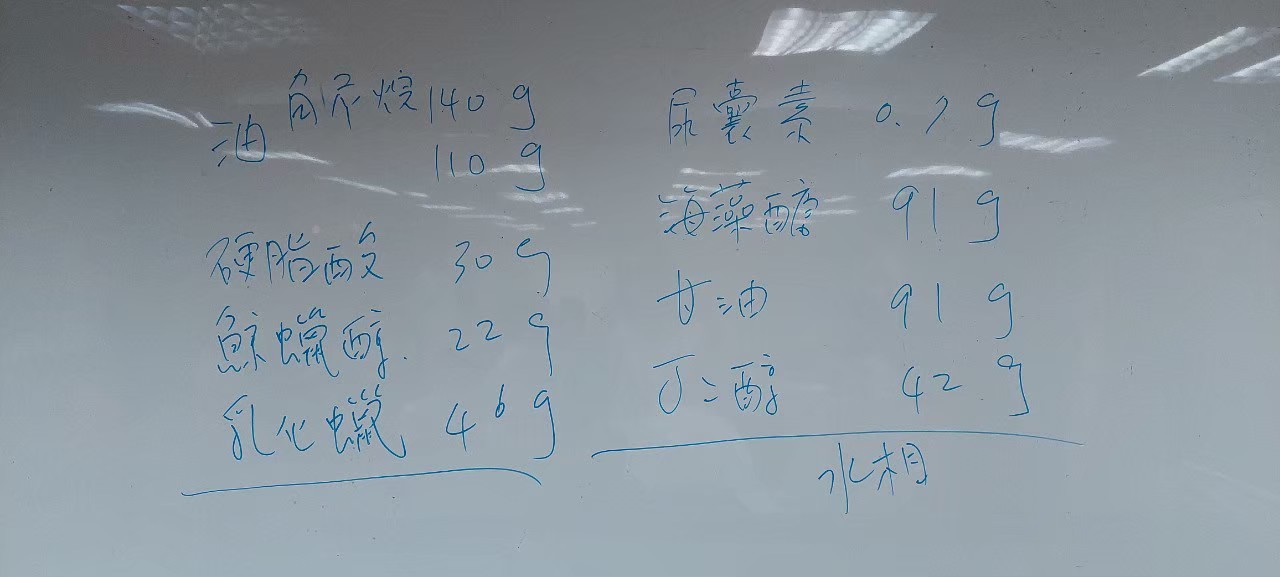 角鯊烷 140 g
油 110 g
硬脂酸 30 g
鯨蠟醇 22 g
乳化蠟 46 g
尿囊素 0.7 g
海藻醣 91 g
甘油 91 g
丁二醇 42 g
水相